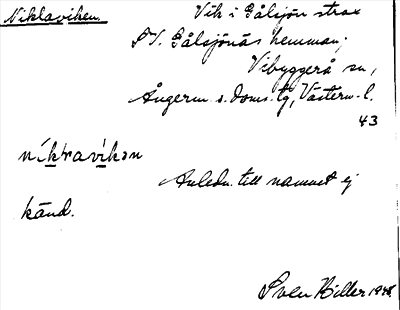 Niklaviken Vik i Gålsjön strax
SV. Gålsjönäs hemman;
Vibyggerå sn,
Ångerm. s. doms. tg, Västern. l.
43
nikravikən
Anledn. till namnet ej
känd.
Sven Hiller 1948.